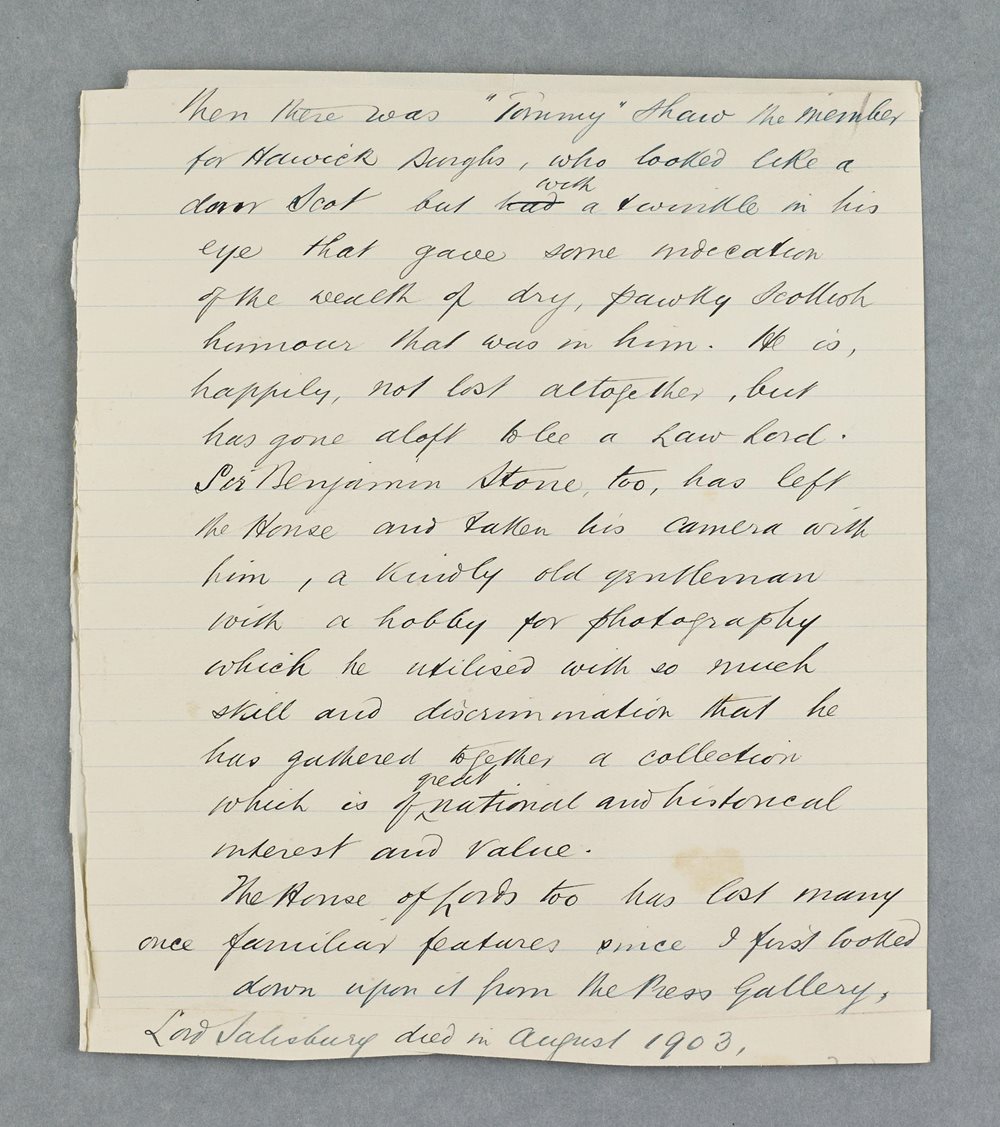 then there was "Tommy" Shaw the member
for Hawick Burghs, who looked like a
dour Scot but had with a twinkle in his
eye that gave some indication
of the wealth of dry, pawky Scottish
humour that was in him. He is,
happily, not lost altogether, but
has gone aloft to be a Law Lord.
Sir Benjamin Stone, too, has left
the House and taken his camera with
him, a kindly old gentleman
with a hobby for photography
which he utilised with so much
skill and discrimination that he
has gathered together a collection
which is of great national and historical
interest and value.
The House of Lords too has lost many
once familiar features since I first looked
down upon it from the Press Gallery,
Lord Salisbury died in August 1903,